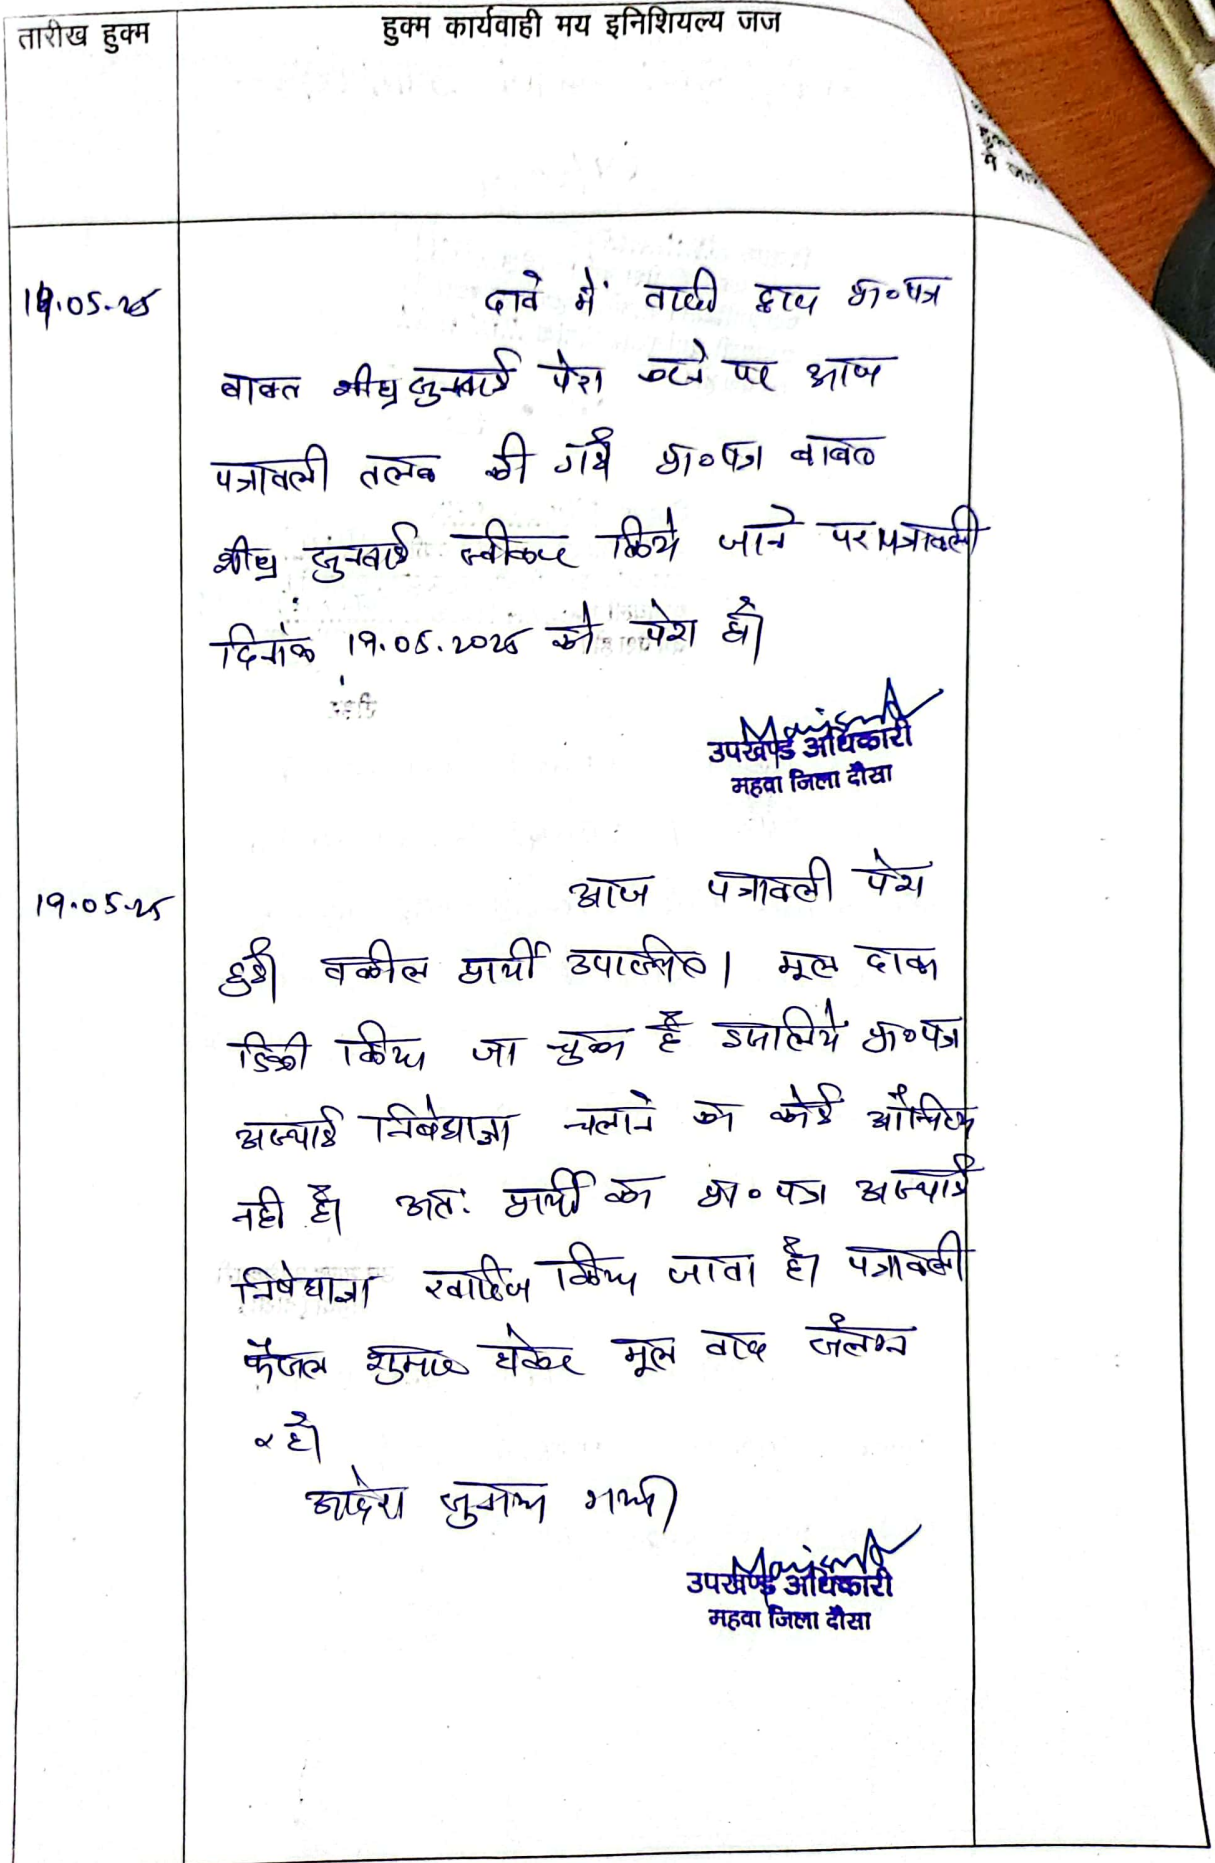 तारीख हुक्म
हुक्म कार्यवाही मय इनिशियल्य जज
दावे में वादी द्वारा प्रा०पत्र
बाबत शीघ्र सुनवाई पेश करने पर आज
पत्रावली तलब की गई प्रा०पत्र बाबत
शीघ्र सुनवाई स्वीकार किये जाने पर पत्रावली
दिनांक 19.05.2025 को पेश हो।
उपखण्ड अधिकारी
महवा जिला दौसा
19.05.25
आज पत्रावली पेश
हुई। वकील प्रार्थी उपस्थित। मूल दावा
डिक्री किया जा चुका है इसलिये प्रा०पत्र
अस्थाई निषेधाज्ञा चलाने का कोई औचित्य
नही है। अतः प्रार्थी का प्रा० पत्र अस्थाई
निषेधाज्ञा खारिज किया जाता है। पत्रावली
फैसल शुमार होकर मूल वाद संलग्न
रहे।
आदेश सुनाया गया।
उपखण्ड अधिकारी
महवा जिला दौसा